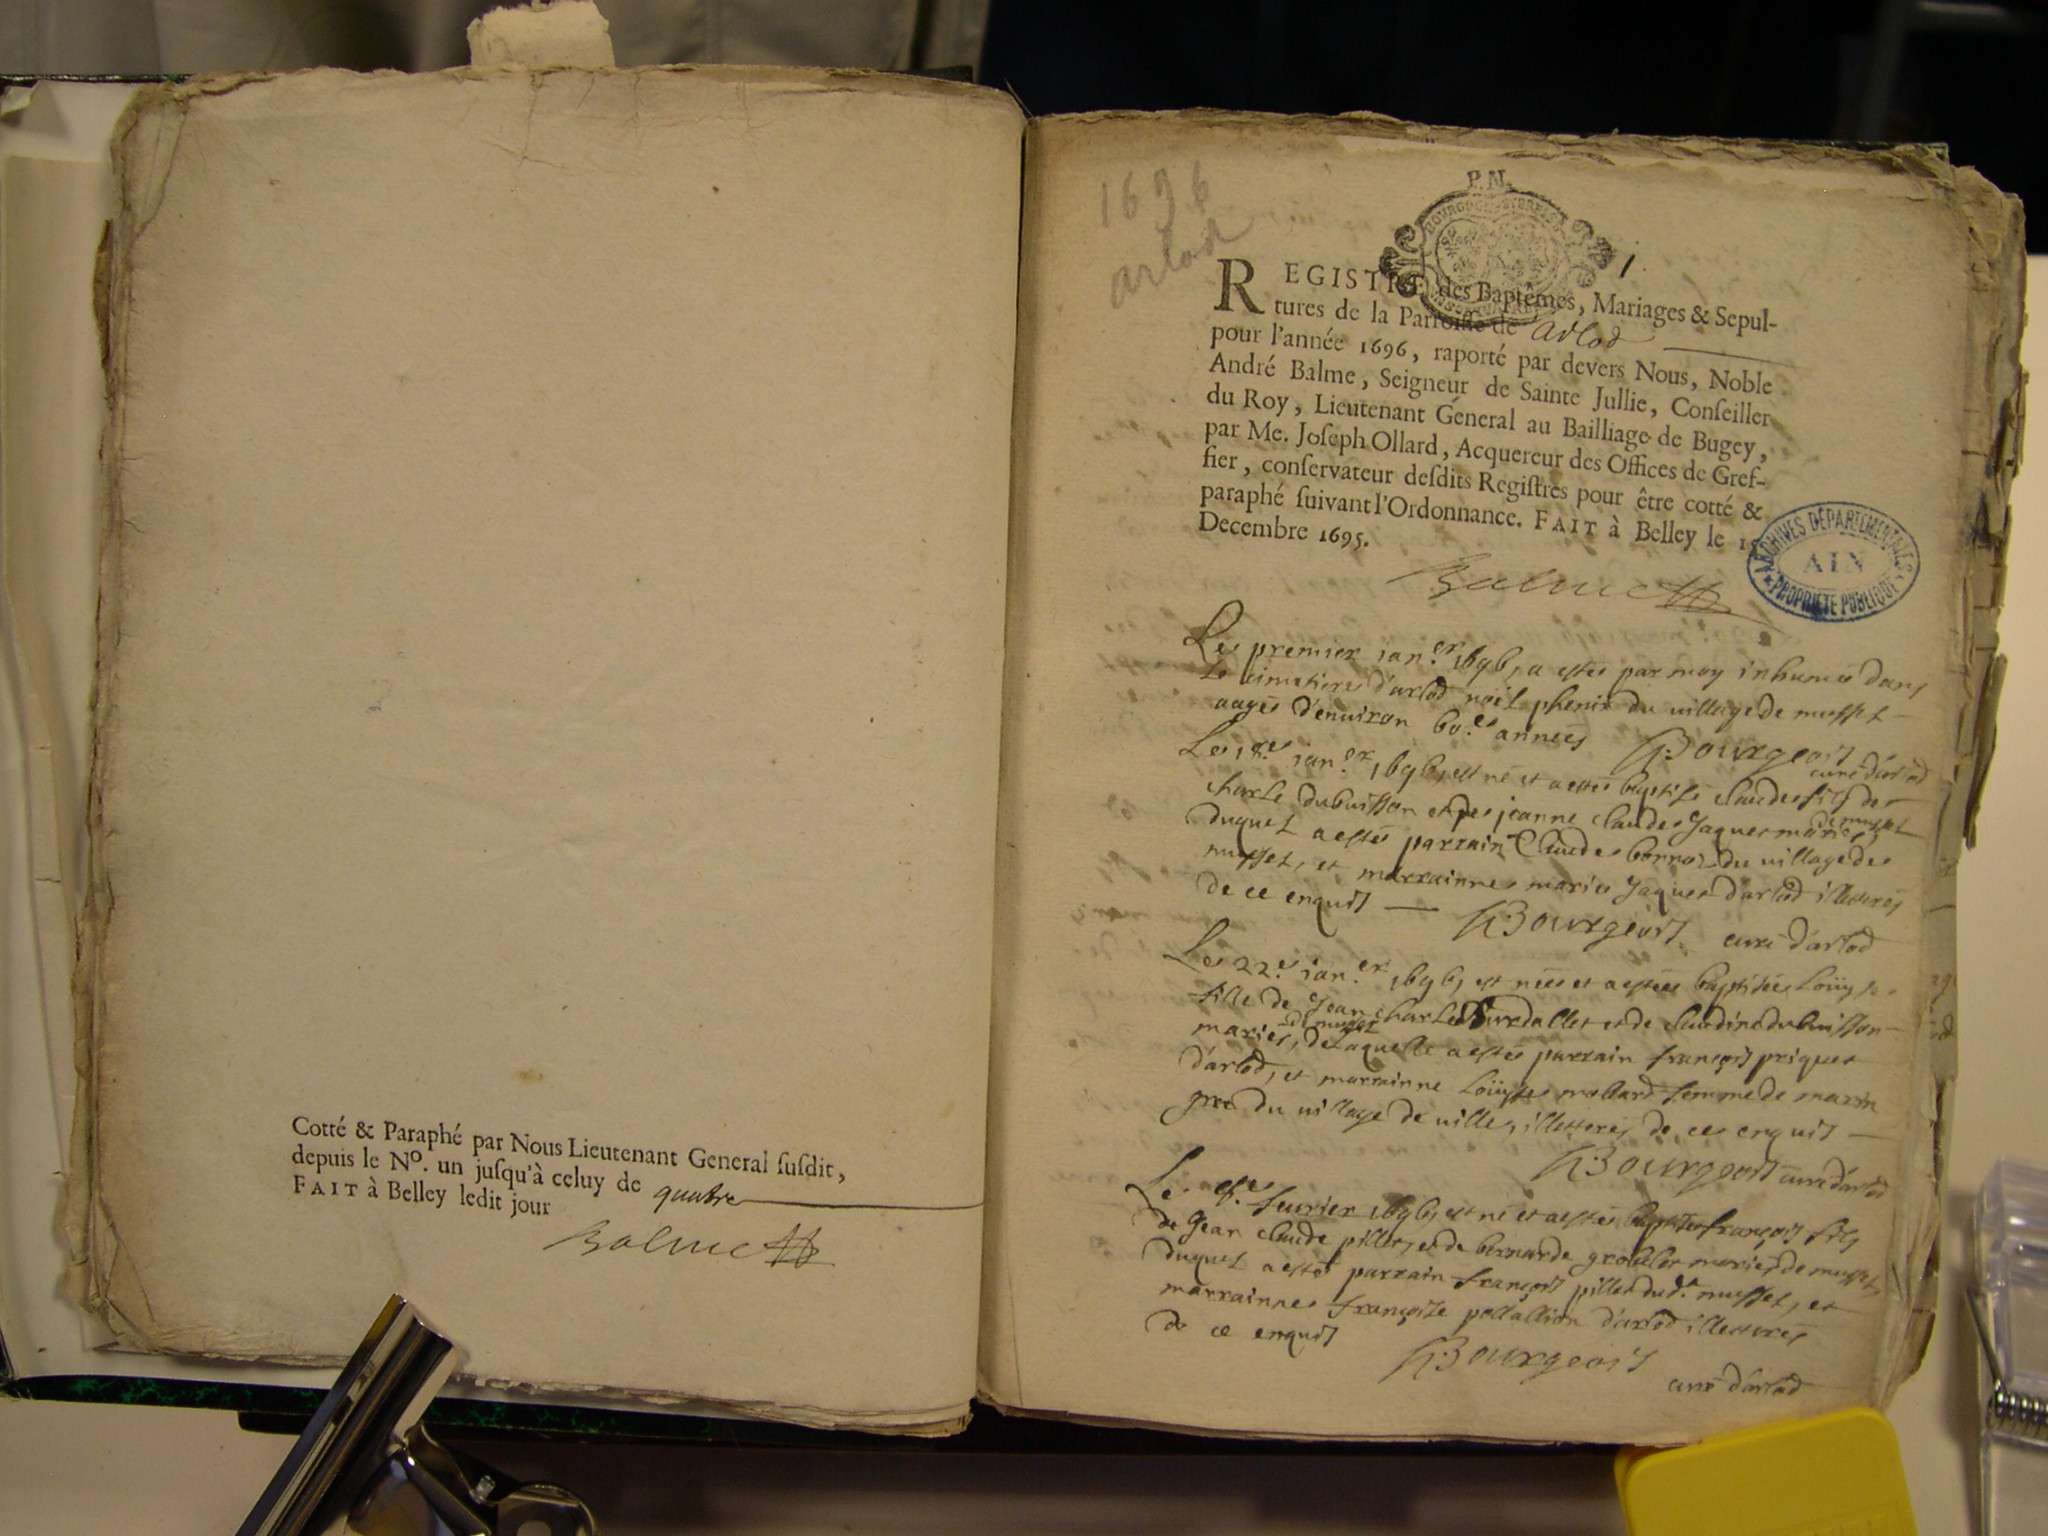 Cotté & Paraphé par Nous Lieutenant General ſuſdit,
depuis le Nº. un juſqu'à celuy de quatre
FAIT à Belley ledit jour
Balme
1696
arlod
P.N.
1
REGISTRE des Baptêmes, Mariages & Sepul-
tures de la Parroiſſe de Arlod
pour l'année 1696, raporté par devers Nous, Noble
André Balme, Seigneur de Sainte Jullie, Conſeiller
du Roy, Lieutenant General au Bailliage de Bugey,
par Me. Joſeph Ollard, Acquereur des Offices de Gref-
fier, conſervateur deſdits Regiſtres pour être cotté &
paraphé ſuivant l'Ordonnance. FAIT à Belley le 15
Decembre 1695.
ARCHIVES DÉPARTEMENTALES
AIN
PROPRIÉTÉ PUBLIQUE
Balme
Le premier ian.er 1696, a esté par moy inhumé dans
le cimetiere d'arlod noël phenix du village de musset
aagé d'environ 60.e années
Bourgeois
curé d'arlod
Le 18.e ian.er 1696, est né et a esté baptisé claude fils de
charle dubuisson et de jeanne claude Jaquet mariés
de musset
duquel a esté parrain Claude borroz du village de
musset, et marrainne marie Jaquet d'arlod illetterés
de ce enquis Bourgeois curé d'arlod
Le 22.e ian.er 1696, est née et a estée baptisée Loüyse
fille de Jean charle et de claudine dubuisson
de musset
mariés, de Laquelle a esté parrain françois priquet
d'arlod, et marrainne Loüyse mollard femme de marin
gros du village de ville, illetterés de ce enquis
Bourgeois curé d'arlod
Le fevrier 1696, est né et a esté baptisé françois fils
de Jean claude pillet, et de bernarde mariés de musset,
duquel a esté parrain françois pillet dud.t musset, et
marrainne françoise d'arlod illetterés
de ce enquis
Bourgeois
curé d'arlod